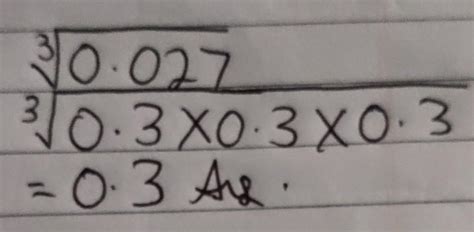 ∛0.027
∛0.3×0.3×0.3
= 0.3 Ans.